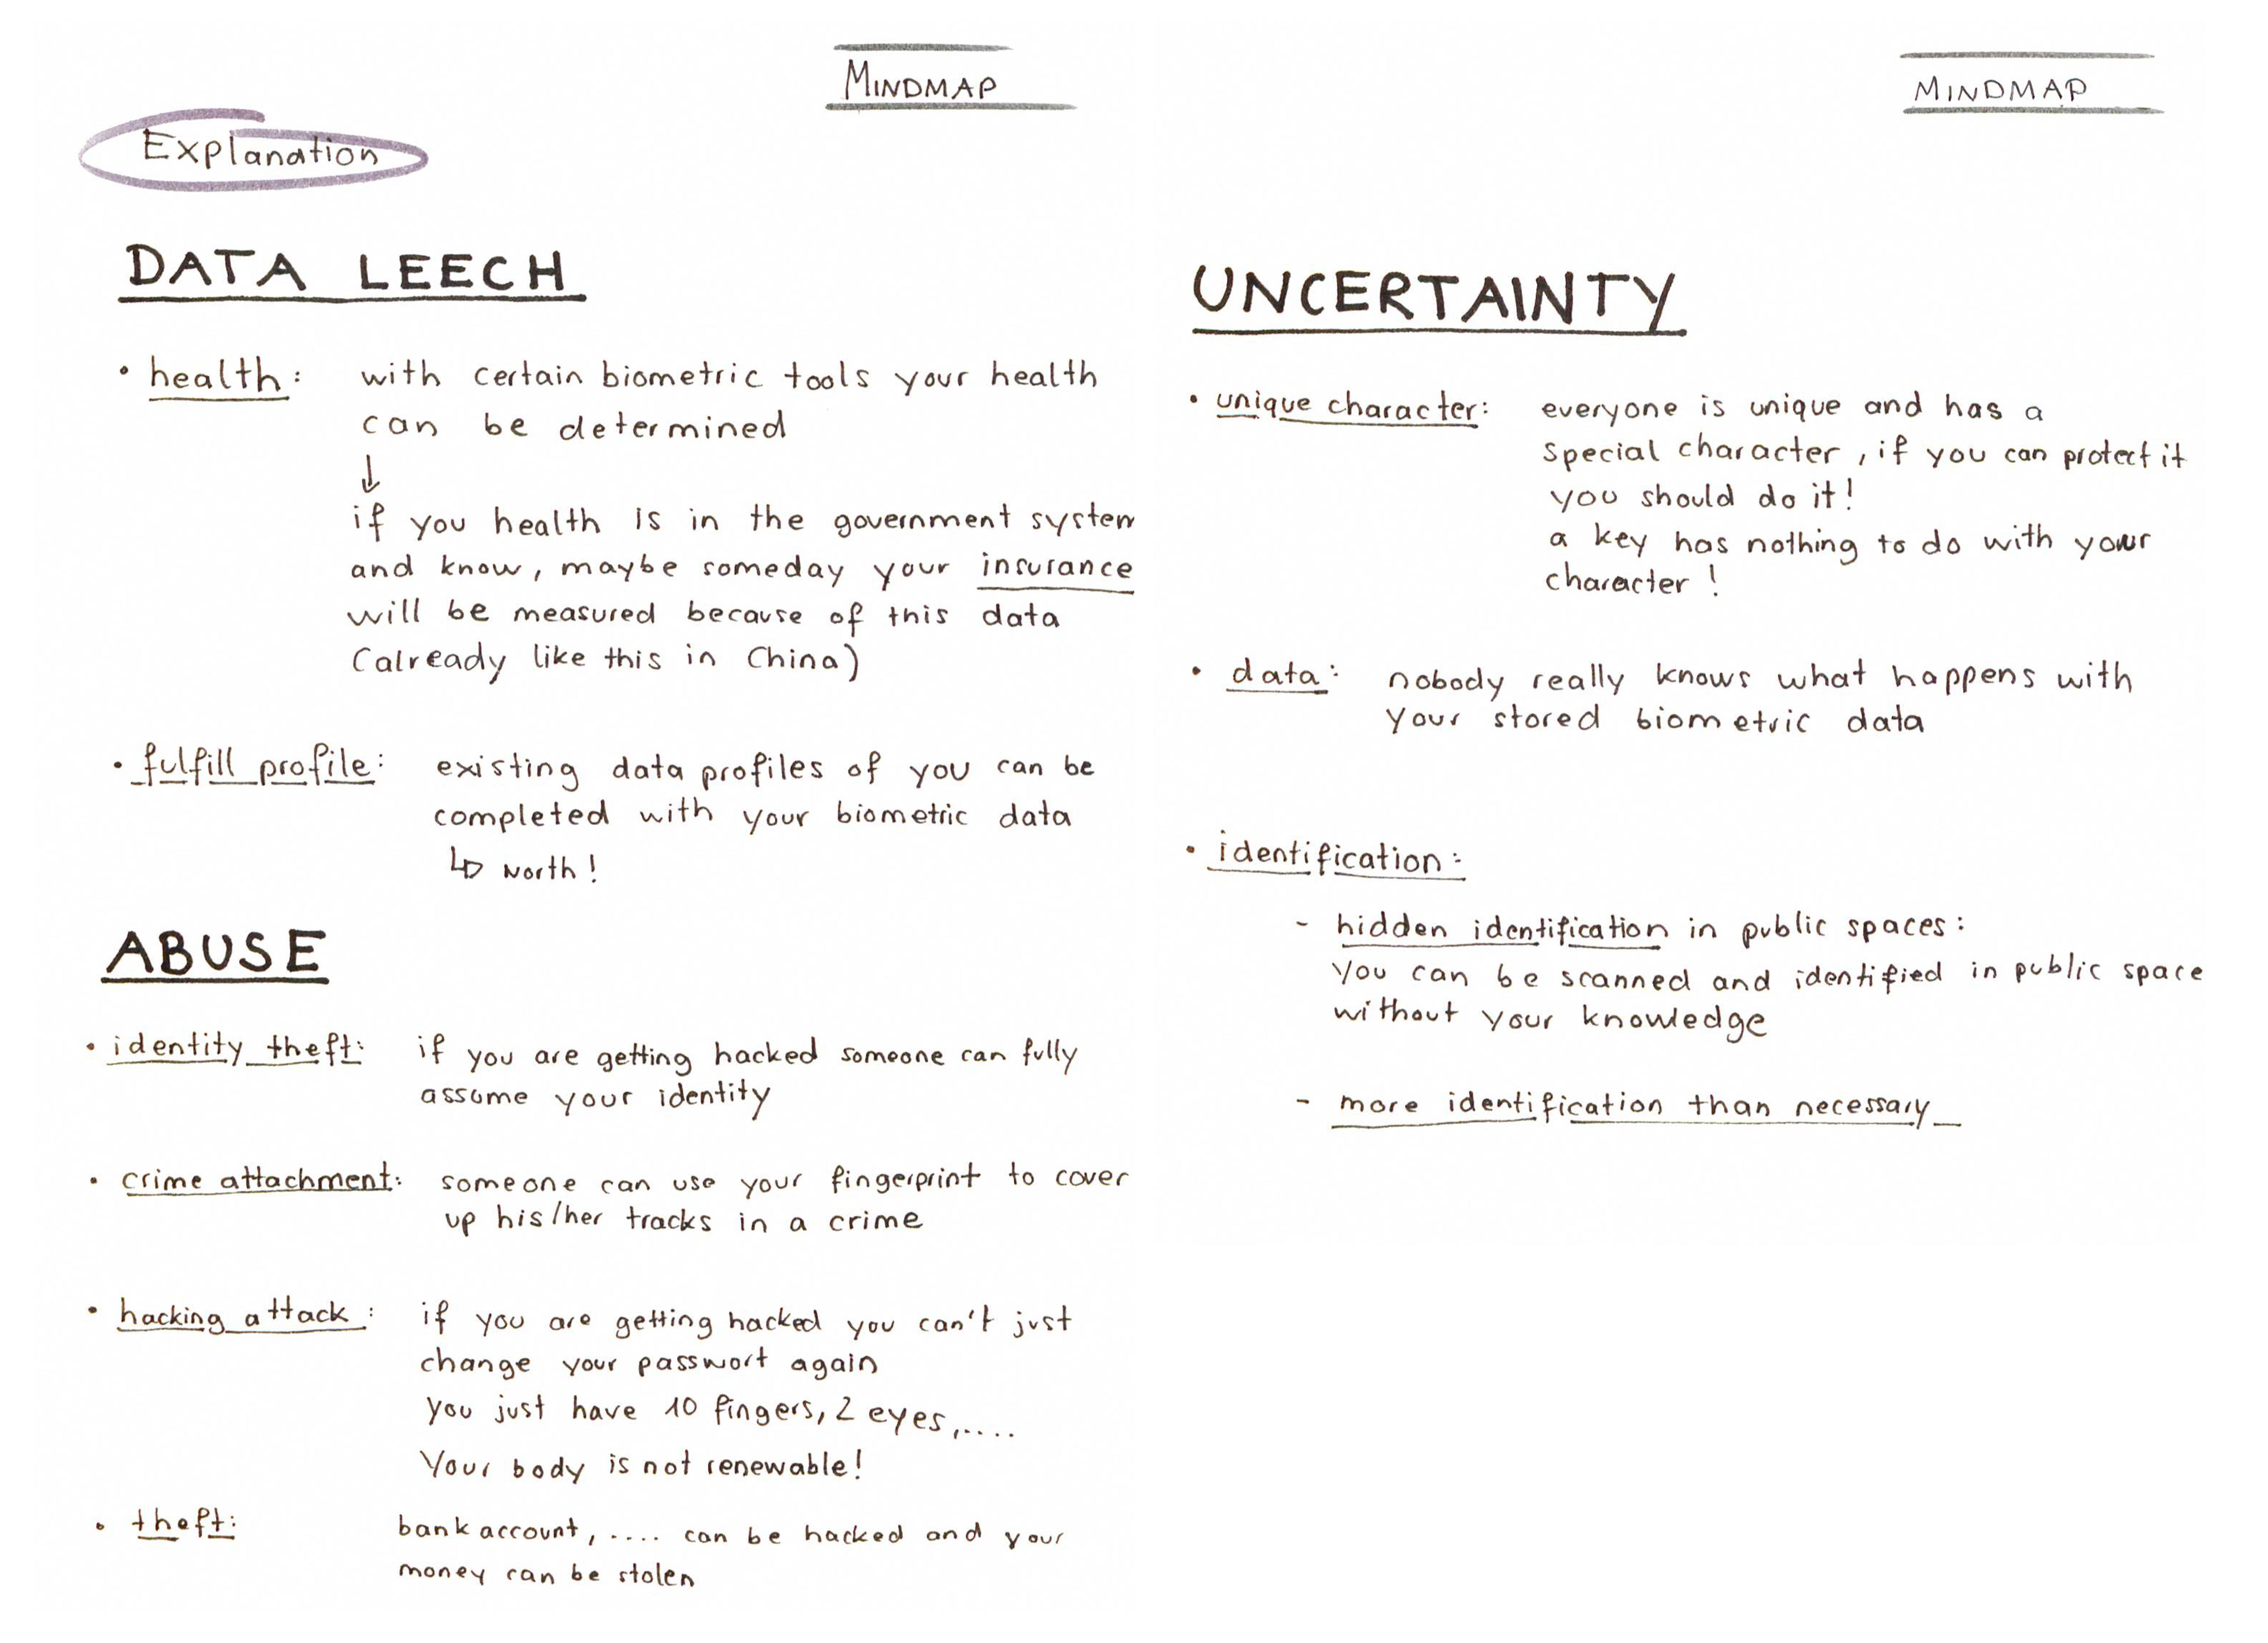 MINDMAP
Explanation
DATA LEECH
• health: with certain biometric tools your health
can be determined
↓
if you health is in the government system
and know, maybe someday your insurance
will be measured because of this data
(already like this in China)
• fulfill profile: existing data profiles of you can be
completed with your biometric data
↳ worth!
ABUSE
• identity theft: if you are getting hacked someone can fully
assume your identity
• crime attachment: someone can use your fingerprint to cover
up his/her tracks in a crime
• hacking attack: if you are getting hacked you can't just
change your passwort again
you just have 10 fingers, 2 eyes,....
Your body is not renewable!
• theft: bank account, .... can be hacked and your
money can be stolen
MINDMAP
UNCERTAINTY
• unique character: everyone is unique and has a
special character, if you can protect it
you should do it!
a key has nothing to do with your
character!
• data: nobody really knows what happens with
your stored biometric data
• identification:
- hidden identification in public spaces:
you can be scanned and identified in public space
without your knowledge
- more identification than necessary